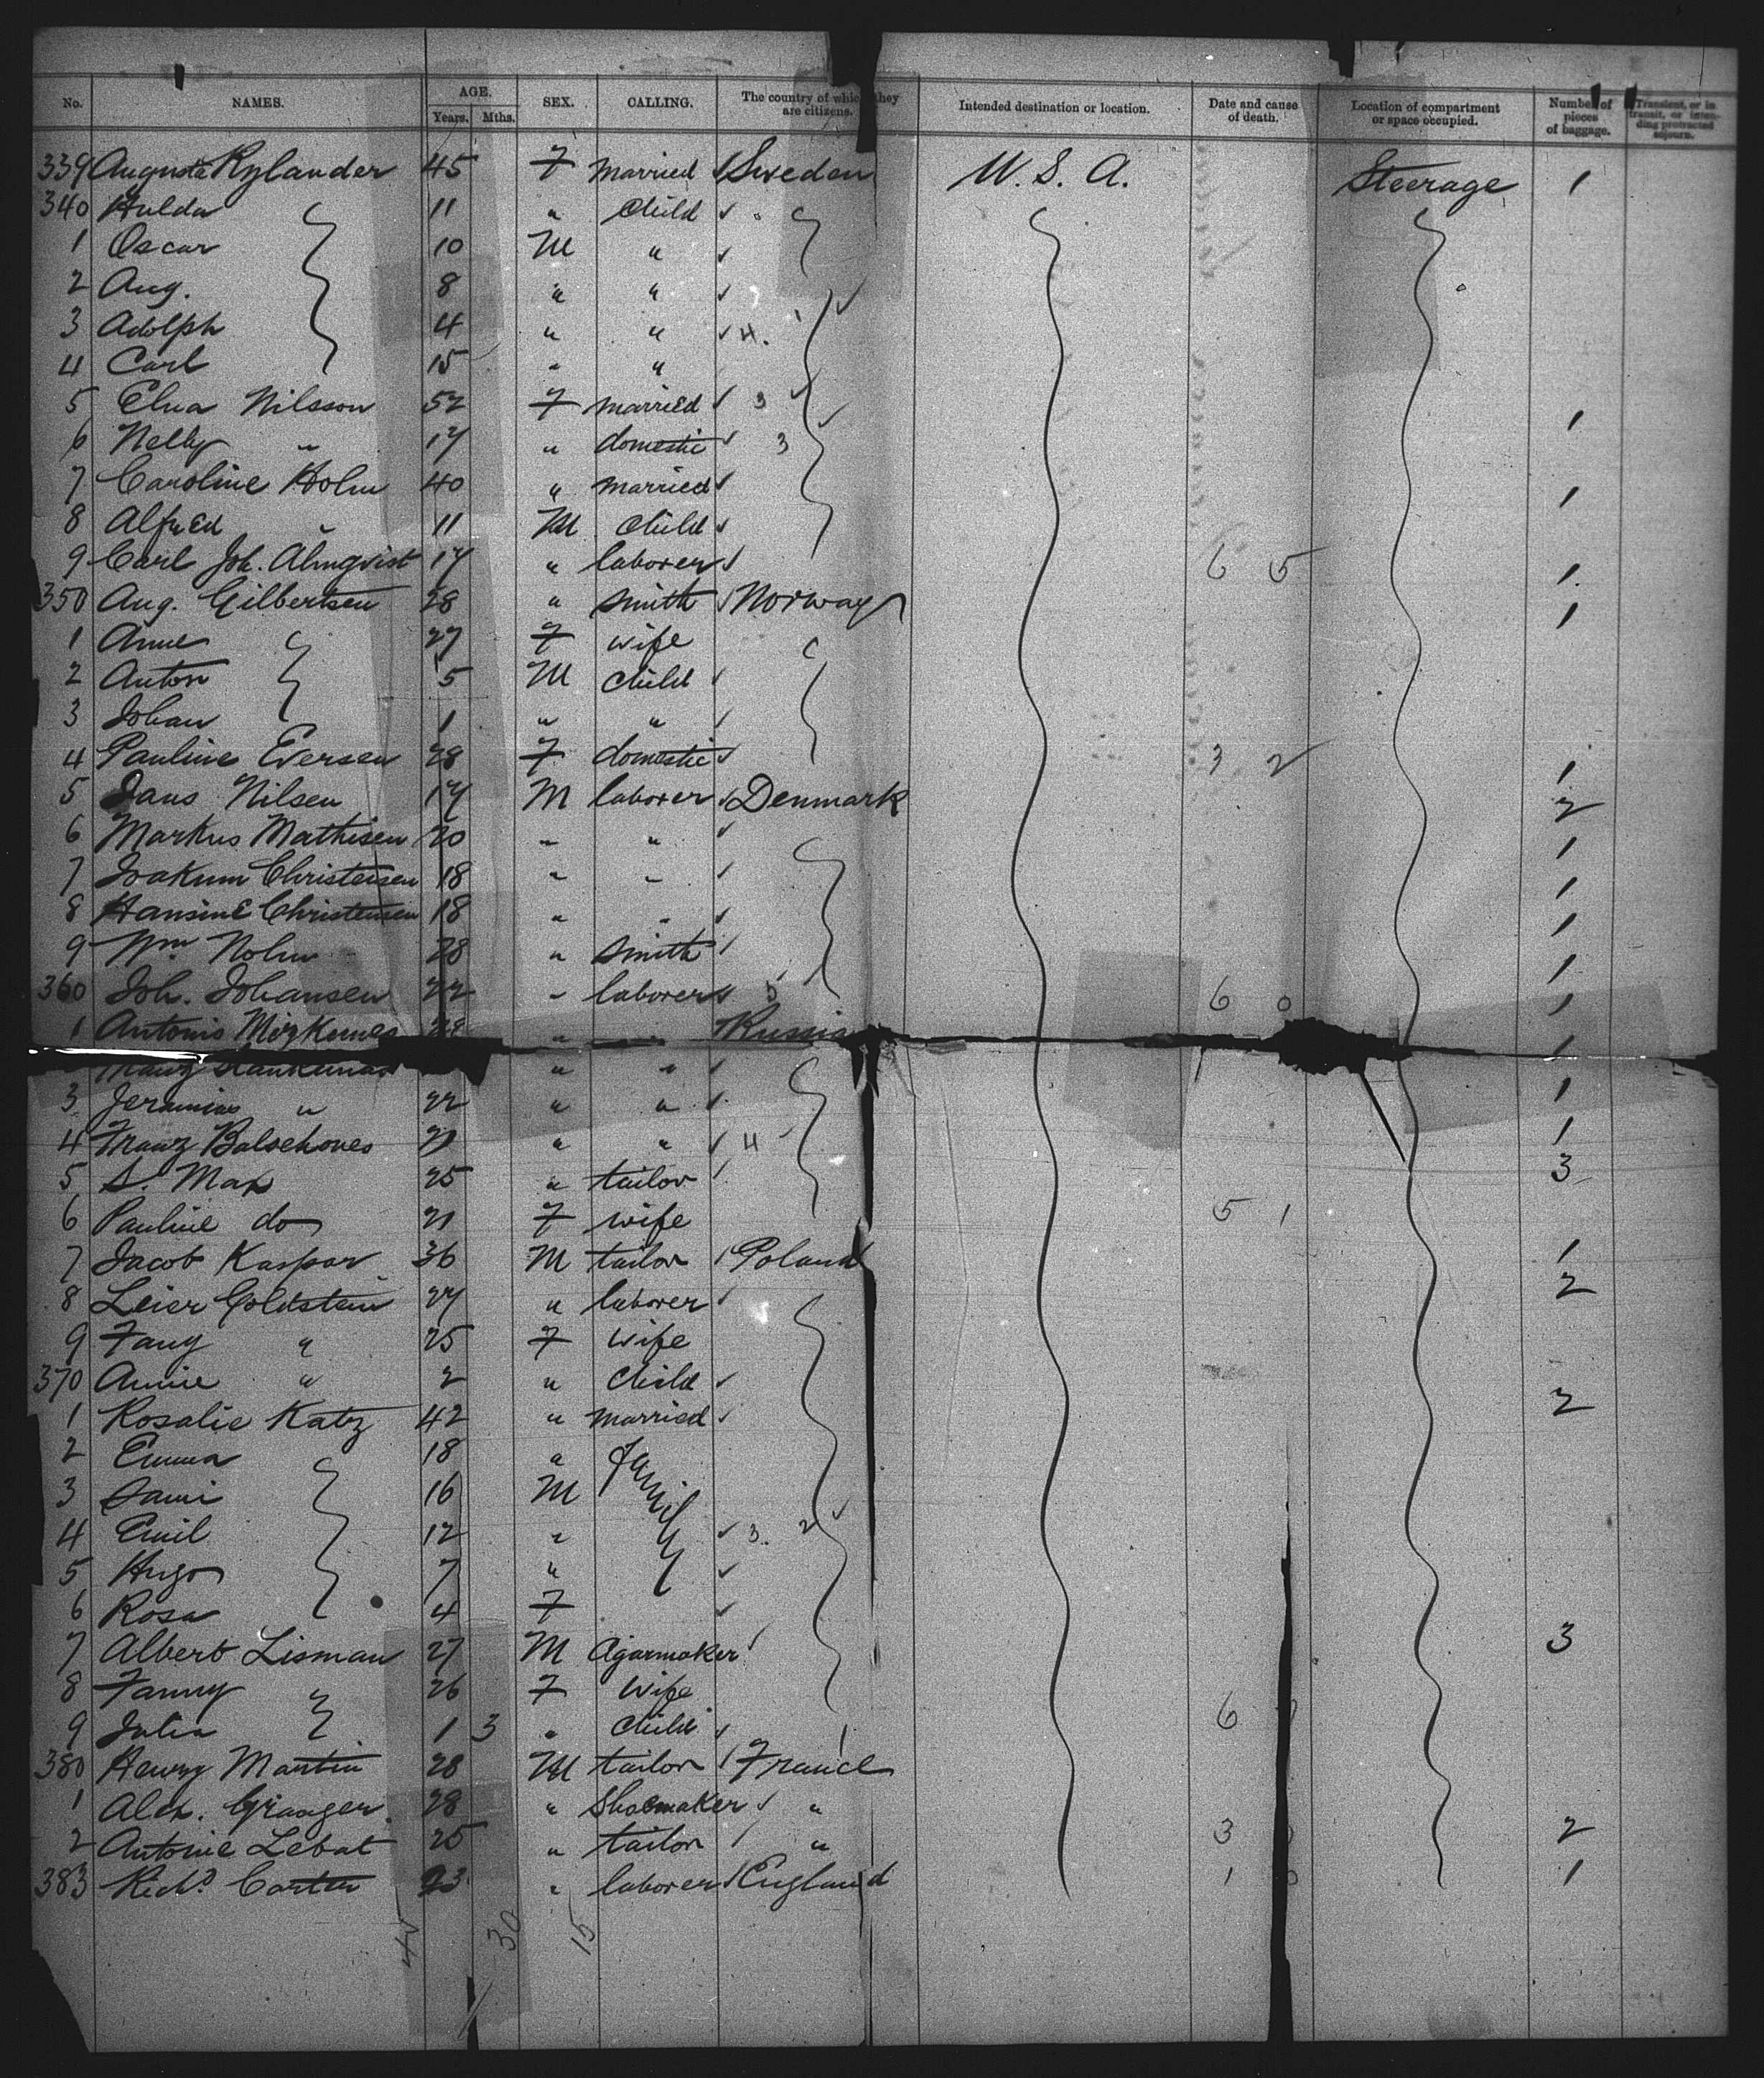 No. NAMES. AGE. Years. Mths. SEX. CALLING. The country of which they are citizens. Intended destination or location. Date and cause of death. Location of compartment or space occupied. Number of pieces of baggage. Transient, or in transit, or intending protracted sojourn.
339 Augusta Rylander 45 F married Sweden U.S.A. Steerage 1
340 Hulda 11 " child
1 Oscar 10 M "
2 Aug. 8 " "
3 Adolph 4 " " 4.
4 Carl 15 " "
5 Elna Nilsson 52 F married 3 1
6 Nelly " 17 " domestic 3
7 Caroline Holm 40 " married 1
8 Alfred " 11 M child
9 Carl Joh. Almqvist 17 " laborer 6 5 1
350 Aug. Gilbertsen 28 " smith Norway 1
1 Anne 27 F wife
2 Anton 5 M child
3 Johan 1 " "
4 Pauline Eversen 28 F domestic 3 2 1
5 Jans Nilsen 17 M laborer Denmark 2
6 Markus Mathisen 20 " " 1
7 Joakum Christensen 18 " " 1
8 Hansine Christensen 18 " " 1
9 Wm Nolm 28 " smith 1
360 Joh. Johansen 22 " laborer 5 6 0 1
1 Antonis 28 " Russia 1
" "
3 Jeramias " 22 " " 1
4 Franz Balschones 21 " " 4 1
5 S. Max 25 " tailor 3
6 Pauline do 21 F wife 5 1
7 Jacob Kaspar 36 M tailor Poland 1
8 Leier Goldstein 27 " laborer 2
9 Fany " 25 F wife
370 Annie " 2 " child
1 Rosalie Katz 42 " married 2
2 Emma 18 " Family
3 Sami 16 M
4 Emil 12 " 3 2
5 Hugo 7 "
6 Rosa 4 F
7 Albert Lisman 27 M Cigarmaker 3
8 Fanny " 26 F wife
9 Julia 1 3 " child 6
380 Henry Martin 28 M tailor France
1 Alex. Graager 28 " Shoemaker "
2 Antoine Lebat 25 " tailor " 3 2
383 Richd Carter 23 " laborer England 1 1
30 15